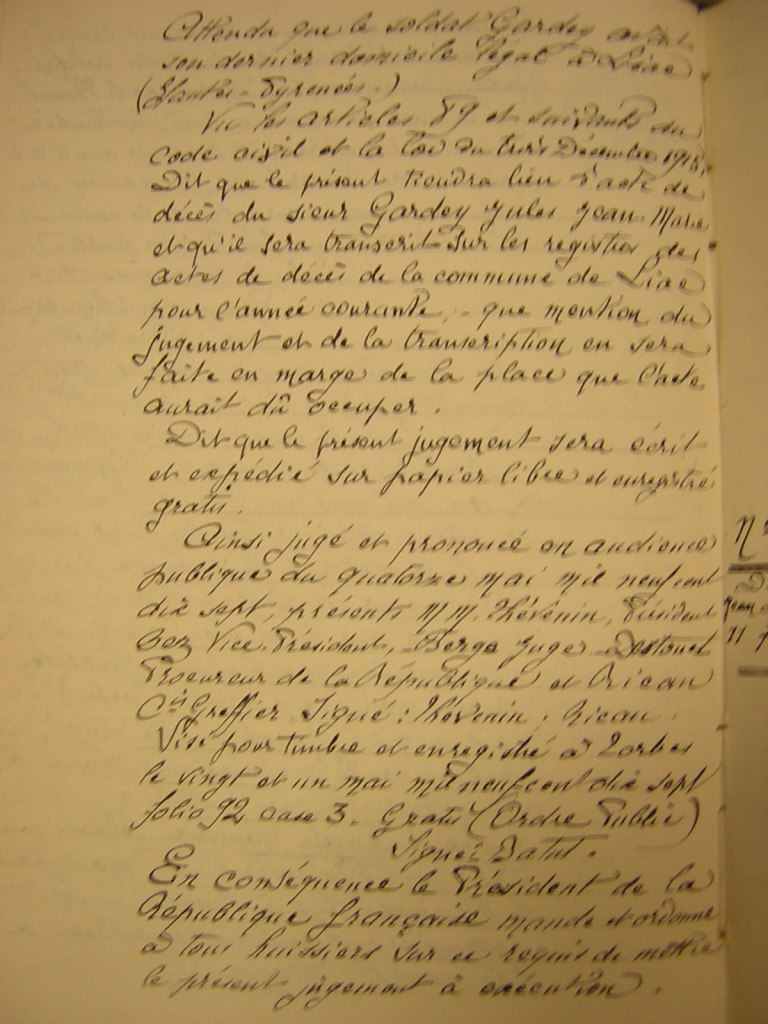 Attendu que le soldat Gardey avait
son dernier domicile légal à Liac
(Hautes-Pyrénées.)
Vu les articles 89 et suivants du
code civil et la loi du trois Décembre 1915,
Dit que le présent tiendra lieu d'acte de
décès du sieur Gardey Jules Jean-Marie
et qu'il sera transcrit sur les registres des
actes de décès de la commune de Liac
pour l'année courante, - que mention du
jugement et de la transcription en sera
faite en marge de la place que l'acte
aurait dû occuper.
Dit que le présent jugement sera écrit
et expédié sur papier libre et enregistré
gratis.
Ainsi jugé et prononcé en audience
publique du quatorze mai mil neuf cent
dix sept, présents M M. Thévenin, Président
Vice-Président, Berge Juge
Procureur de la République et Rican
Cis Greffier. Signé: Thévenin, Rican.
Visé pour timbre et enregistré à Tarbes
le vingt et un mai mil neuf cent dix sept
folio 92 case 3. Gratis (Ordre Public)
Signé: Batut.
En conséquence le Président de la
République française mande et ordonne
à tous huissiers sur ce requis de mettre
le présent jugement à exécution.